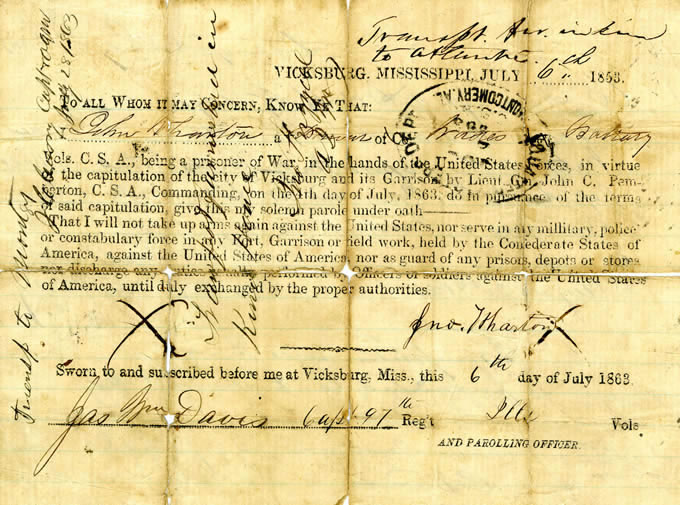 Transpt. for. in kind
to Atlanta.
VICKSBURG, MISSISSIPPI, JULY 6th 1863.
TO ALL WHOM IT MAY CONCERN, KNOW YE THAT:
I John Wharton a of Co. Battery
Vols. C. S. A., being a prisoner of War, in the hands of the United States Forces, in virtue
of the capitulation of the city of Vicksburg and its Garrison by Lieut. Gen. John C. Pem-
berton, C. S. A., Commanding, on the 4th day of July, 1863, do in pursuance of the terms
of said capitulation, give this my solemn parole under oath
That I will not take up arms again against the United States, nor serve in any millitary, police
or constabulary force in any Fort, Garrison or field work, held by the Confederate States of
America, against the United States of America, nor as guard of any prisons, depots or stores
nor discharge any duties usually performed by officers or soldiers against the United States
of America, until duly exchanged by the proper authorities.
Jno. Wharton
Sworn to and subscribed before me at Vicksburg, Miss., this 6th day of July 1863.
Jas Wm Davis Capt 97th Reg't Ills Vols
AND PAROLLING OFFICER.
MONTGOMERY, AL
Transp to Montgy
28/1863
Transp in
Kind